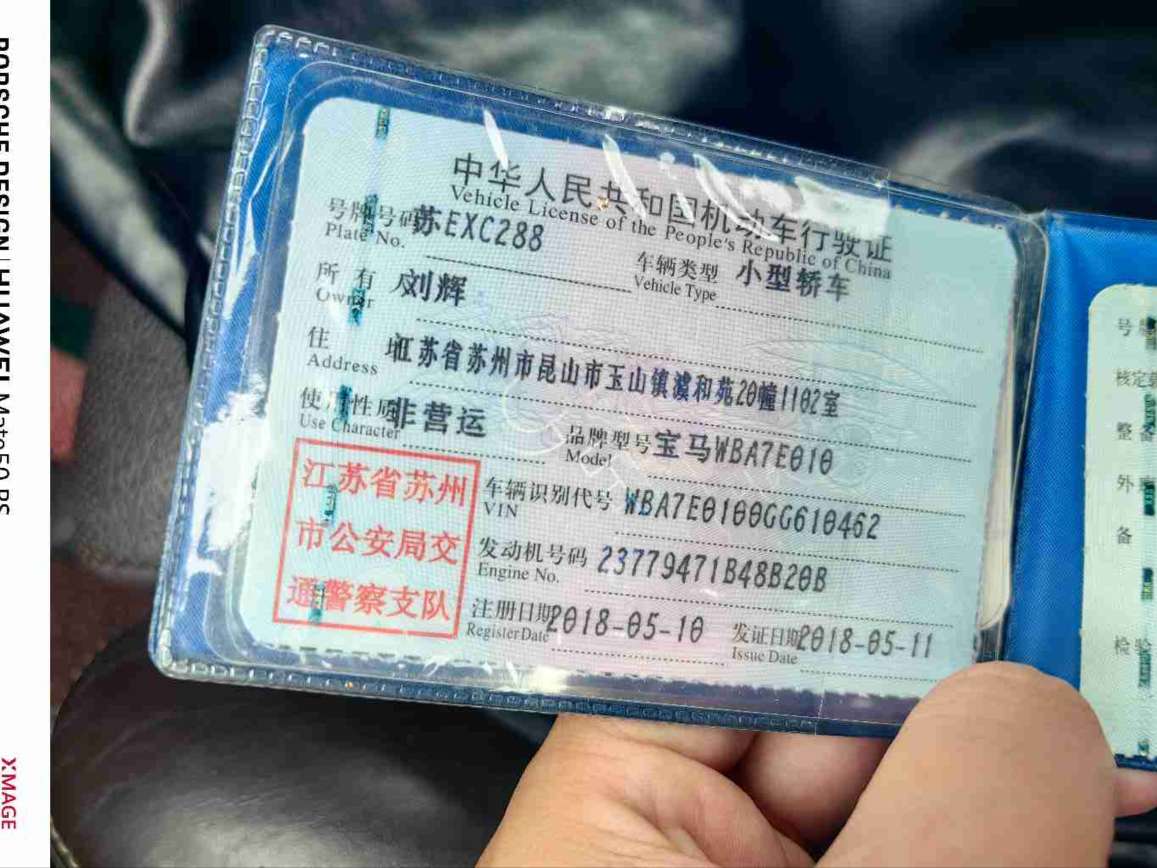 中华人民共和国机动车行驶证
Vehicle License of the People's Republic of China
号牌号码 苏EXC288
Plate No.
车辆类型 小型轿车
Vehicle Type
所有人 刘辉
Owner
住址 江苏省苏州市昆山市玉山镇濮和苑20幢1102室
Address
使用性质 非营运
Use Character
品牌型号 宝马WBA7E010
Model
江苏省苏州
市公安局交
通警察支队
车辆识别代号 WBA7E0100GG610462
VIN
发动机号码 23779471B48B20B
Engine No.
注册日期 2018-05-10
Register Date
发证日期 2018-05-11
Issue Date
号牌
核定载
整备
外
备
检验
PORSCHE DESIGN | HUAWEI Mate50 RS
XMAGE